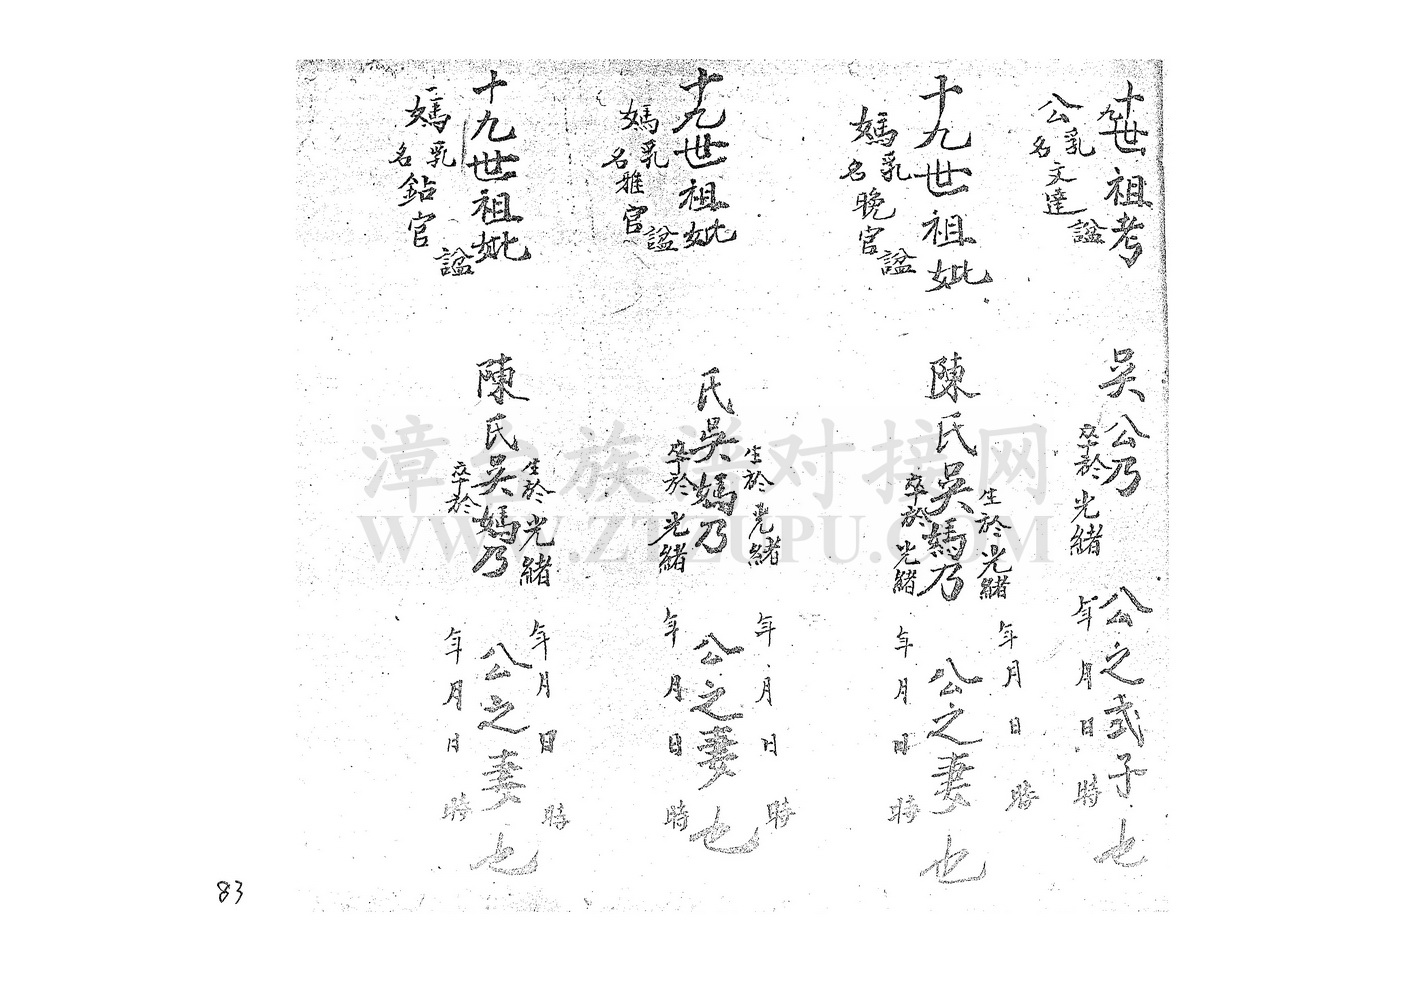 十九世祖考 吳公乃 公之弍子也
公乳名文達 諡 卒於光緒 年 月 日 時
十九世祖妣 陳氏吳媽乃 公之妻也
生於光緒 年 月 日 時
媽乳名晚官 諡 卒於光緒 年 月 日 時
十九世祖妣 氏吳媽乃 公之妻也
生於光緒 年 月 日 時
媽乳名雅官 諡 卒於光緒 年 月 日 時
十九世祖妣 陳氏吳媽乃 公之妻也
生於光緒 年 月 日 時
媽乳名鉆官 諡 卒於 年 月 日 時
漳台族谱对接网
WWW.ZTZUPU.COM
83